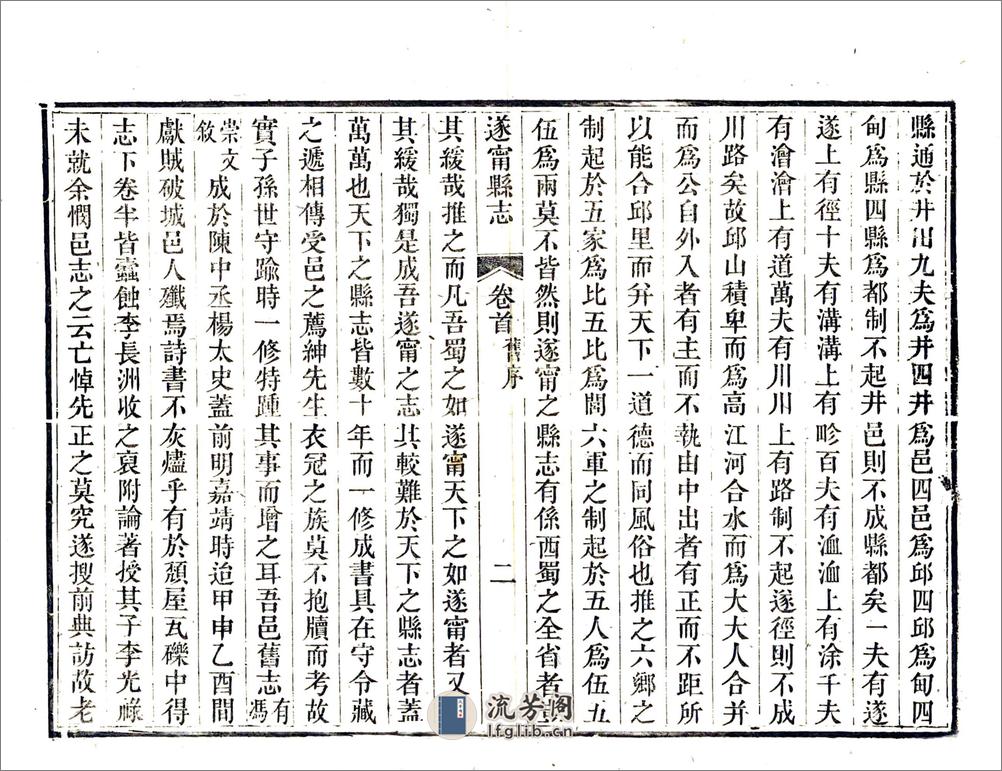 縣通於井田九夫爲井四井爲邑四邑爲邱四邱爲甸四
甸爲縣四縣爲都制不起井邑則不成縣都矣一夫有遂
遂上有徑十夫有溝溝上有畛百夫有洫洫上有涂千夫
有澮澮上有道萬夫有川川上有路制不起遂徑則不成
川路矣故邱山積卑而爲高江河合水而爲大大人合并
而爲公自外入者有主而不執由中出者有正而不距所
以能合邱里而公天下一道德而同風俗也推之六鄉之
制起於五家爲比五比爲閭六軍之制起於五人爲伍五
伍爲兩莫不皆然則遂甯之縣志有係西蜀之全省者
遂甯縣志 卷首 舊序 二
其緩哉推之而凡吾蜀之如遂甯天下之如遂甯者又
其緩哉獨是成吾遂甯之志其較難於天下之縣志者蓋
萬萬也天下之縣志皆數十年而一修成書具在守令藏
之遞相傳受邑之薦紳先生衣冠之族莫不抱牘而考故
實子孫世守踰時一修特踵其事而增之耳吾邑舊志有馮
崇文敘成於陳中丞楊太史蓋前明嘉靖時迨甲申乙酉間
獻賊破城邑人殲焉詩書不灰燼乎有於頹屋瓦礫中得
志下卷半皆蠹蝕李長洲收之裒附論著授其子李光祿
未就余憫邑志之云亡悼先正之莫究遂搜前典訪故老
流芳阁
lfglib.cn